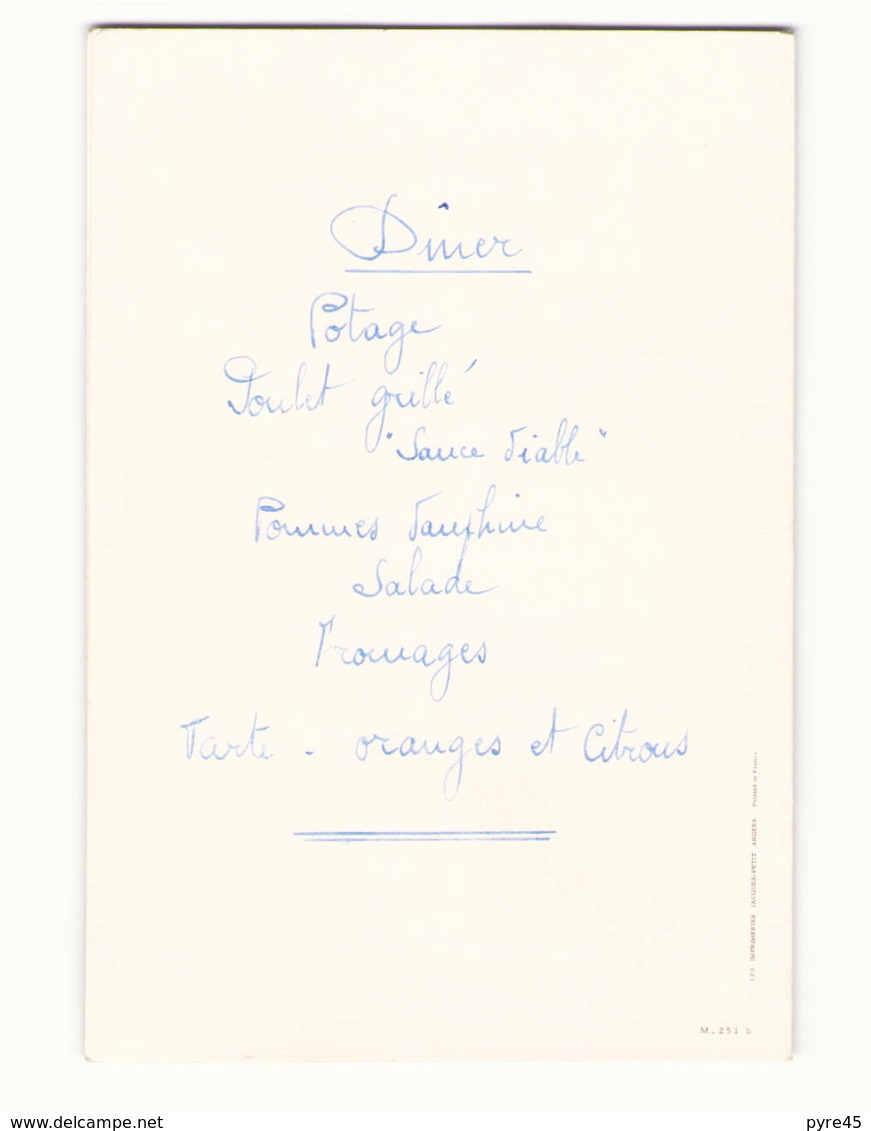 Dîner
Potage
Poulet grillé
"Sauce diable"
Pommes dauphine
Salade
Fromages
Tarte - oranges et Citrons
LES IMPRIMERIES JACQUES-PETIT ANGERS Printed in France
M. 251 b
www.delcampe.net
pyre45